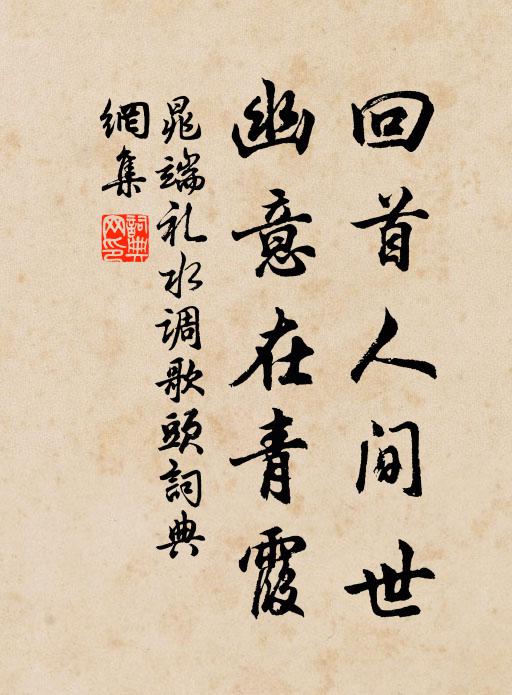 回首人间世
幽意在青霞
晁端礼水调歌头词典
網集
詞典
网印